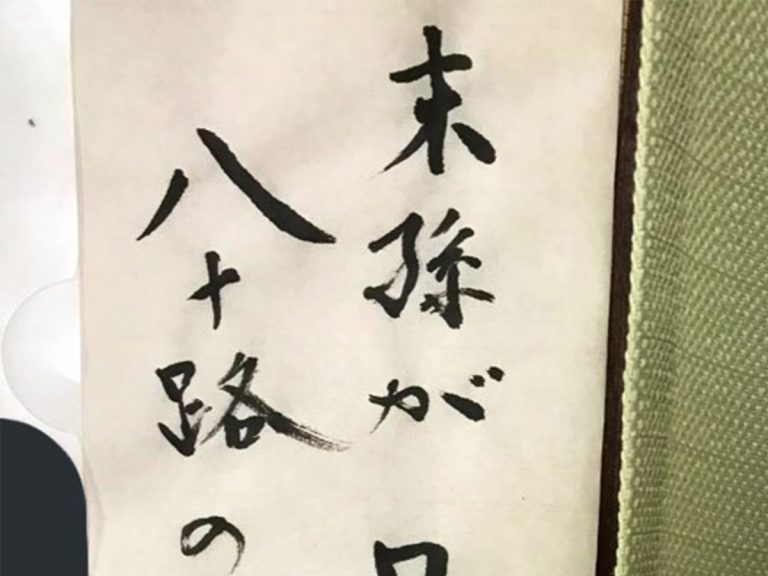 末孫が
八十路の